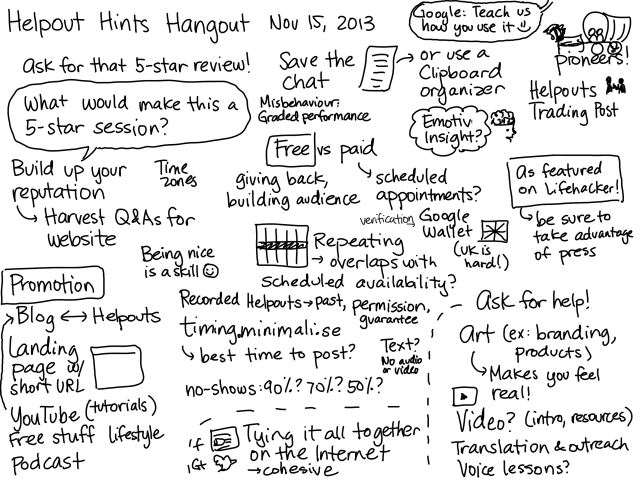 Helpout Hints Hangout Nov 15, 2013
Google: Teach us
how you use it
Pioneers!
Helpouts
Trading Post
Ask for that 5-star review!
What would make this a
5-star session?
Save the
chat
or use a
Clipboard
organizer
Misbehaviour:
Graded performance
Emotiv
Insight?
Build up your
reputation
Harvest Q&As for
website
Time
zones
Free vs paid
giving back,
building audience
scheduled
appointments?
As featured
on Lifehacker!
be sure to
take advantage
of press
verification, Google
Wallet
(UK is
hard!)
Being nice
is a skill
Repeating
overlaps with
scheduled availability?
Promotion
Blog Helpouts
Landing
page w/
short URL
YouTube (tutorials)
Free stuff lifestyle
Podcast
Recorded Helpouts → past, permission,
guarantee
timing.minimali.se
best time to post?
Text?
No audio
or video
no-shows: 90%? 70%? 50%?
1f
IGt
Tying it all together
on the Internet
→ cohesive
Ask for help!
Art (ex: branding,
products)
Makes you feel
real!
Video? (intro, resources)
Translation & outreach
Voice lessons?